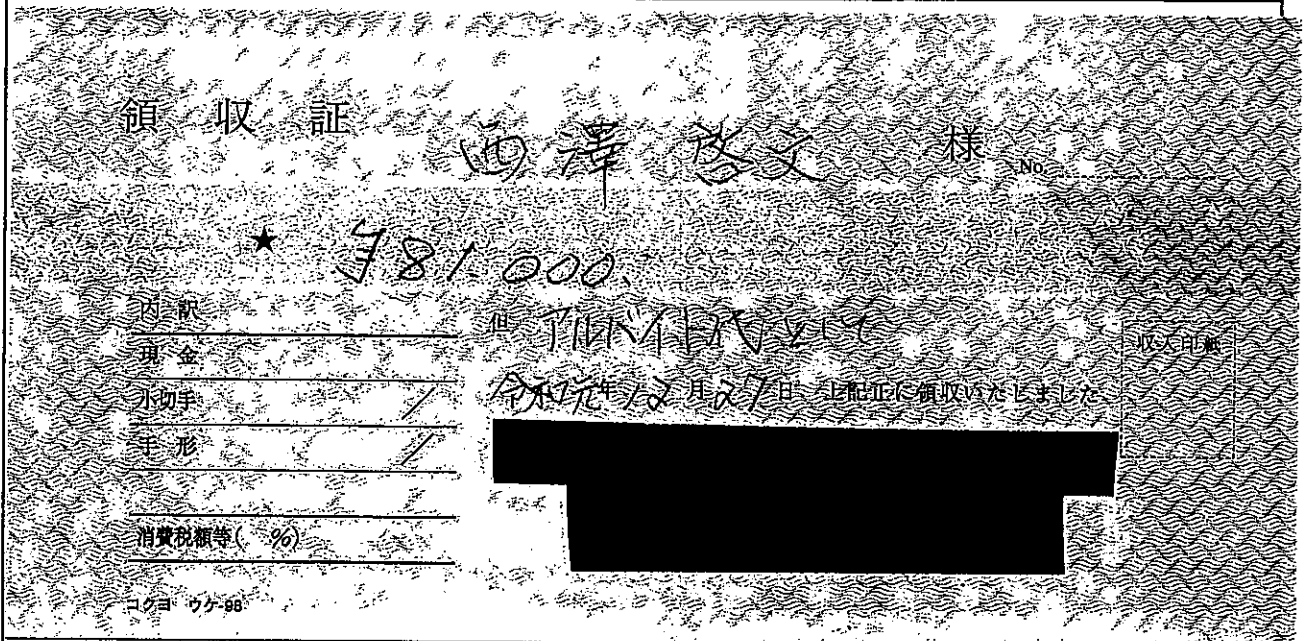 領収証
西澤 啓文 様
No.
★ ¥81,000.
内訳
現金
小切手
手形
消費税額等( %)
但 アルバイト代として
令和元年12月27日 上記正に領収いたしました
収入印紙
コクヨ ウケ-98